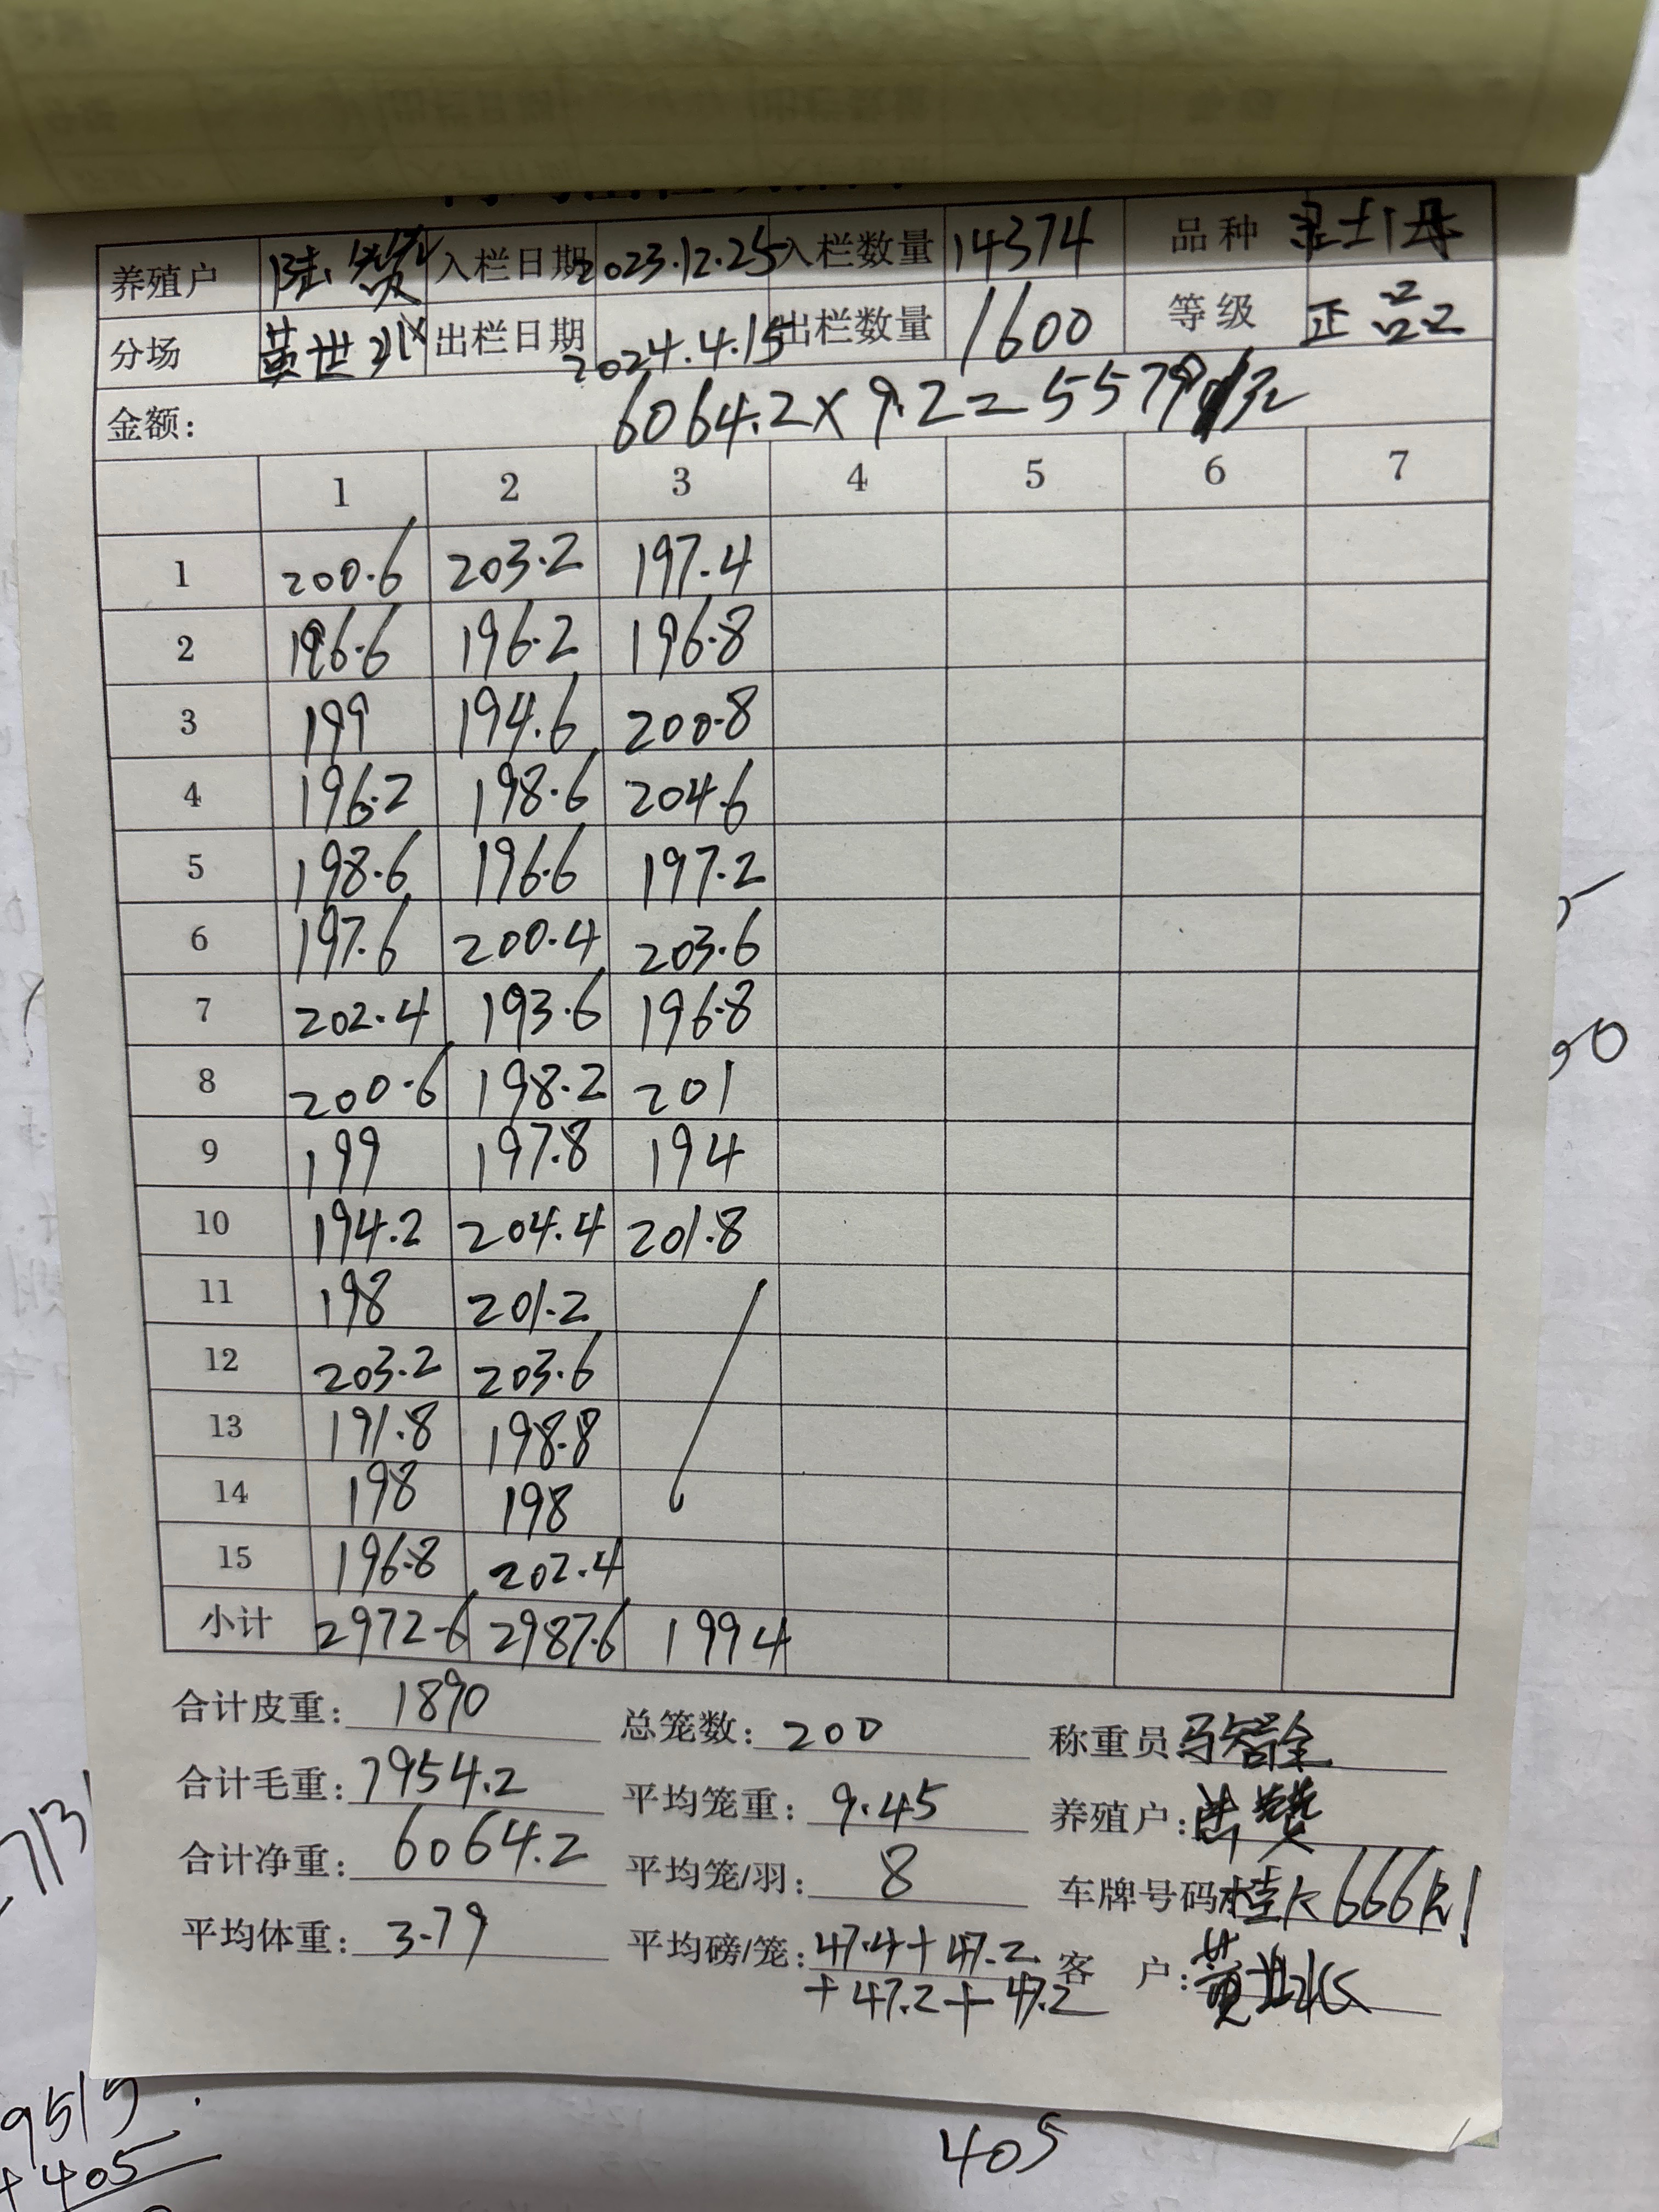 养殖户 陆赞 入栏日期 2023.12.25 入栏数量 14374 品种
分场 黄世水 出栏日期 2024.4.15 出栏数量 1600 等级 正品
金额: 6064.2×9.2=55791元
1 2 3 4 5 6 7
1 200.6 203.2 197.4
2 196.6 196.2 196.8
3 199 194.6 200.8
4 196.2 198.6 204.6
5 198.6 196.6 197.2
6 197.6 200.4 203.6
7 202.4 193.6 196.8
8 200.6 198.2 201
9 199 197.8 194
10 194.2 204.4 201.8
11 198 201.2
12 203.2 203.6
13 191.8 198.8
14 198 198
15 196.8 202.4
小计 2972.6 2987.6 1994
合计皮重: 1890 总笼数: 200 称重员 马智全
合计毛重: 7954.2 平均笼重: 9.45 养殖户: 陆赞
合计净重: 6064.2 平均笼/羽: 8 车牌号码 桂K666R1
平均体重: 3.79 平均磅/笼: 47.4+47.2 客 户: 黄世水
+47.2+47.2
713
9515
+405
405